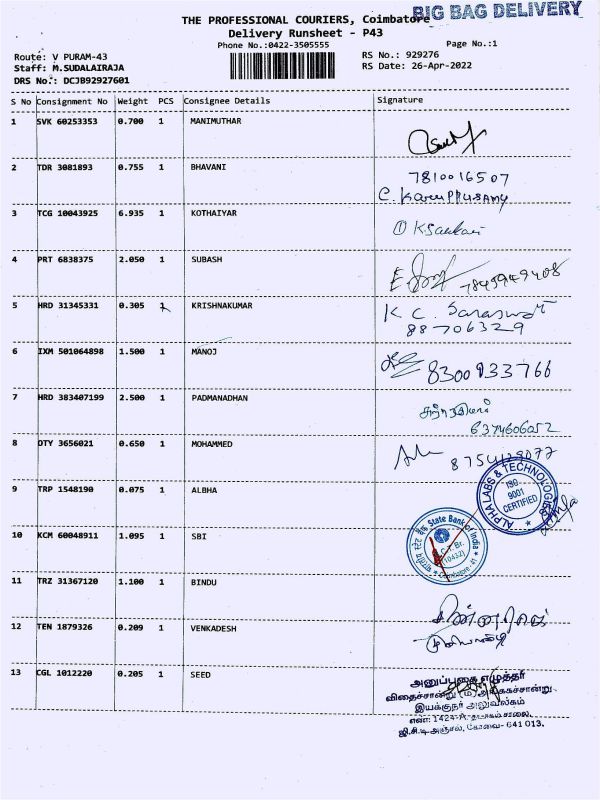 BIG BAG DELIVERY
THE PROFESSIONAL COURIERS, Coimbatore
Delivery Runsheet - P43
Phone No.:0422-3505555
Page No.:1
Route: V PURAM-43
RS No.: 929276
Staff: M.SUDALAIRAJA
RS Date: 26-Apr-2022
DRS No.: DCJB92927601
S No Consignment No Weight PCS Consignee Details Signature
1 SVK 60253353 0.700 1 MANIMUTHAR
2 TDR 3081893 0.755 1 BHAVANI 7810016507
C. KARUPPUSAMY
3 TCG 10043925 6.935 1 KOTHAIYAR
4 PRT 6838375 2.050 1 SUBASH
5 HRD 31345331 0.305 1 KRISHNAKUMAR K C. Saraswat
88706329
6 IXM 501064898 1.500 1 MANOJ 8300933766
7 HRD 383407199 2.500 1 PADMANADHAN
6374606052
8 DTY 3656021 0.650 1 MOHAMMED
9 TRP 1548190 0.075 1 ALBHA
ALPHA LABS & TECHNOLOGIES
ISO
9001
CERTIFIED
10 KCM 60048911 1.095 1 SBI
State Bank of India
भारतीय स्टेट बैंक
Coimbatore
11 TRZ 31367120 1.100 1 BINDU
12 TEN 1879326 0.209 1 VENKADESH
13 CGL 1012220 0.205 1 SEED
அனுப்புகை எழுத்தர்
விதைச்சான்று (ம) அங்ககச்சான்று
இயக்குநர் அலுவலகம்
எண்: 1424-A, தடாகம் சாலை,
ஜி.சி.டி அஞ்சல், கோவை- 641 013.